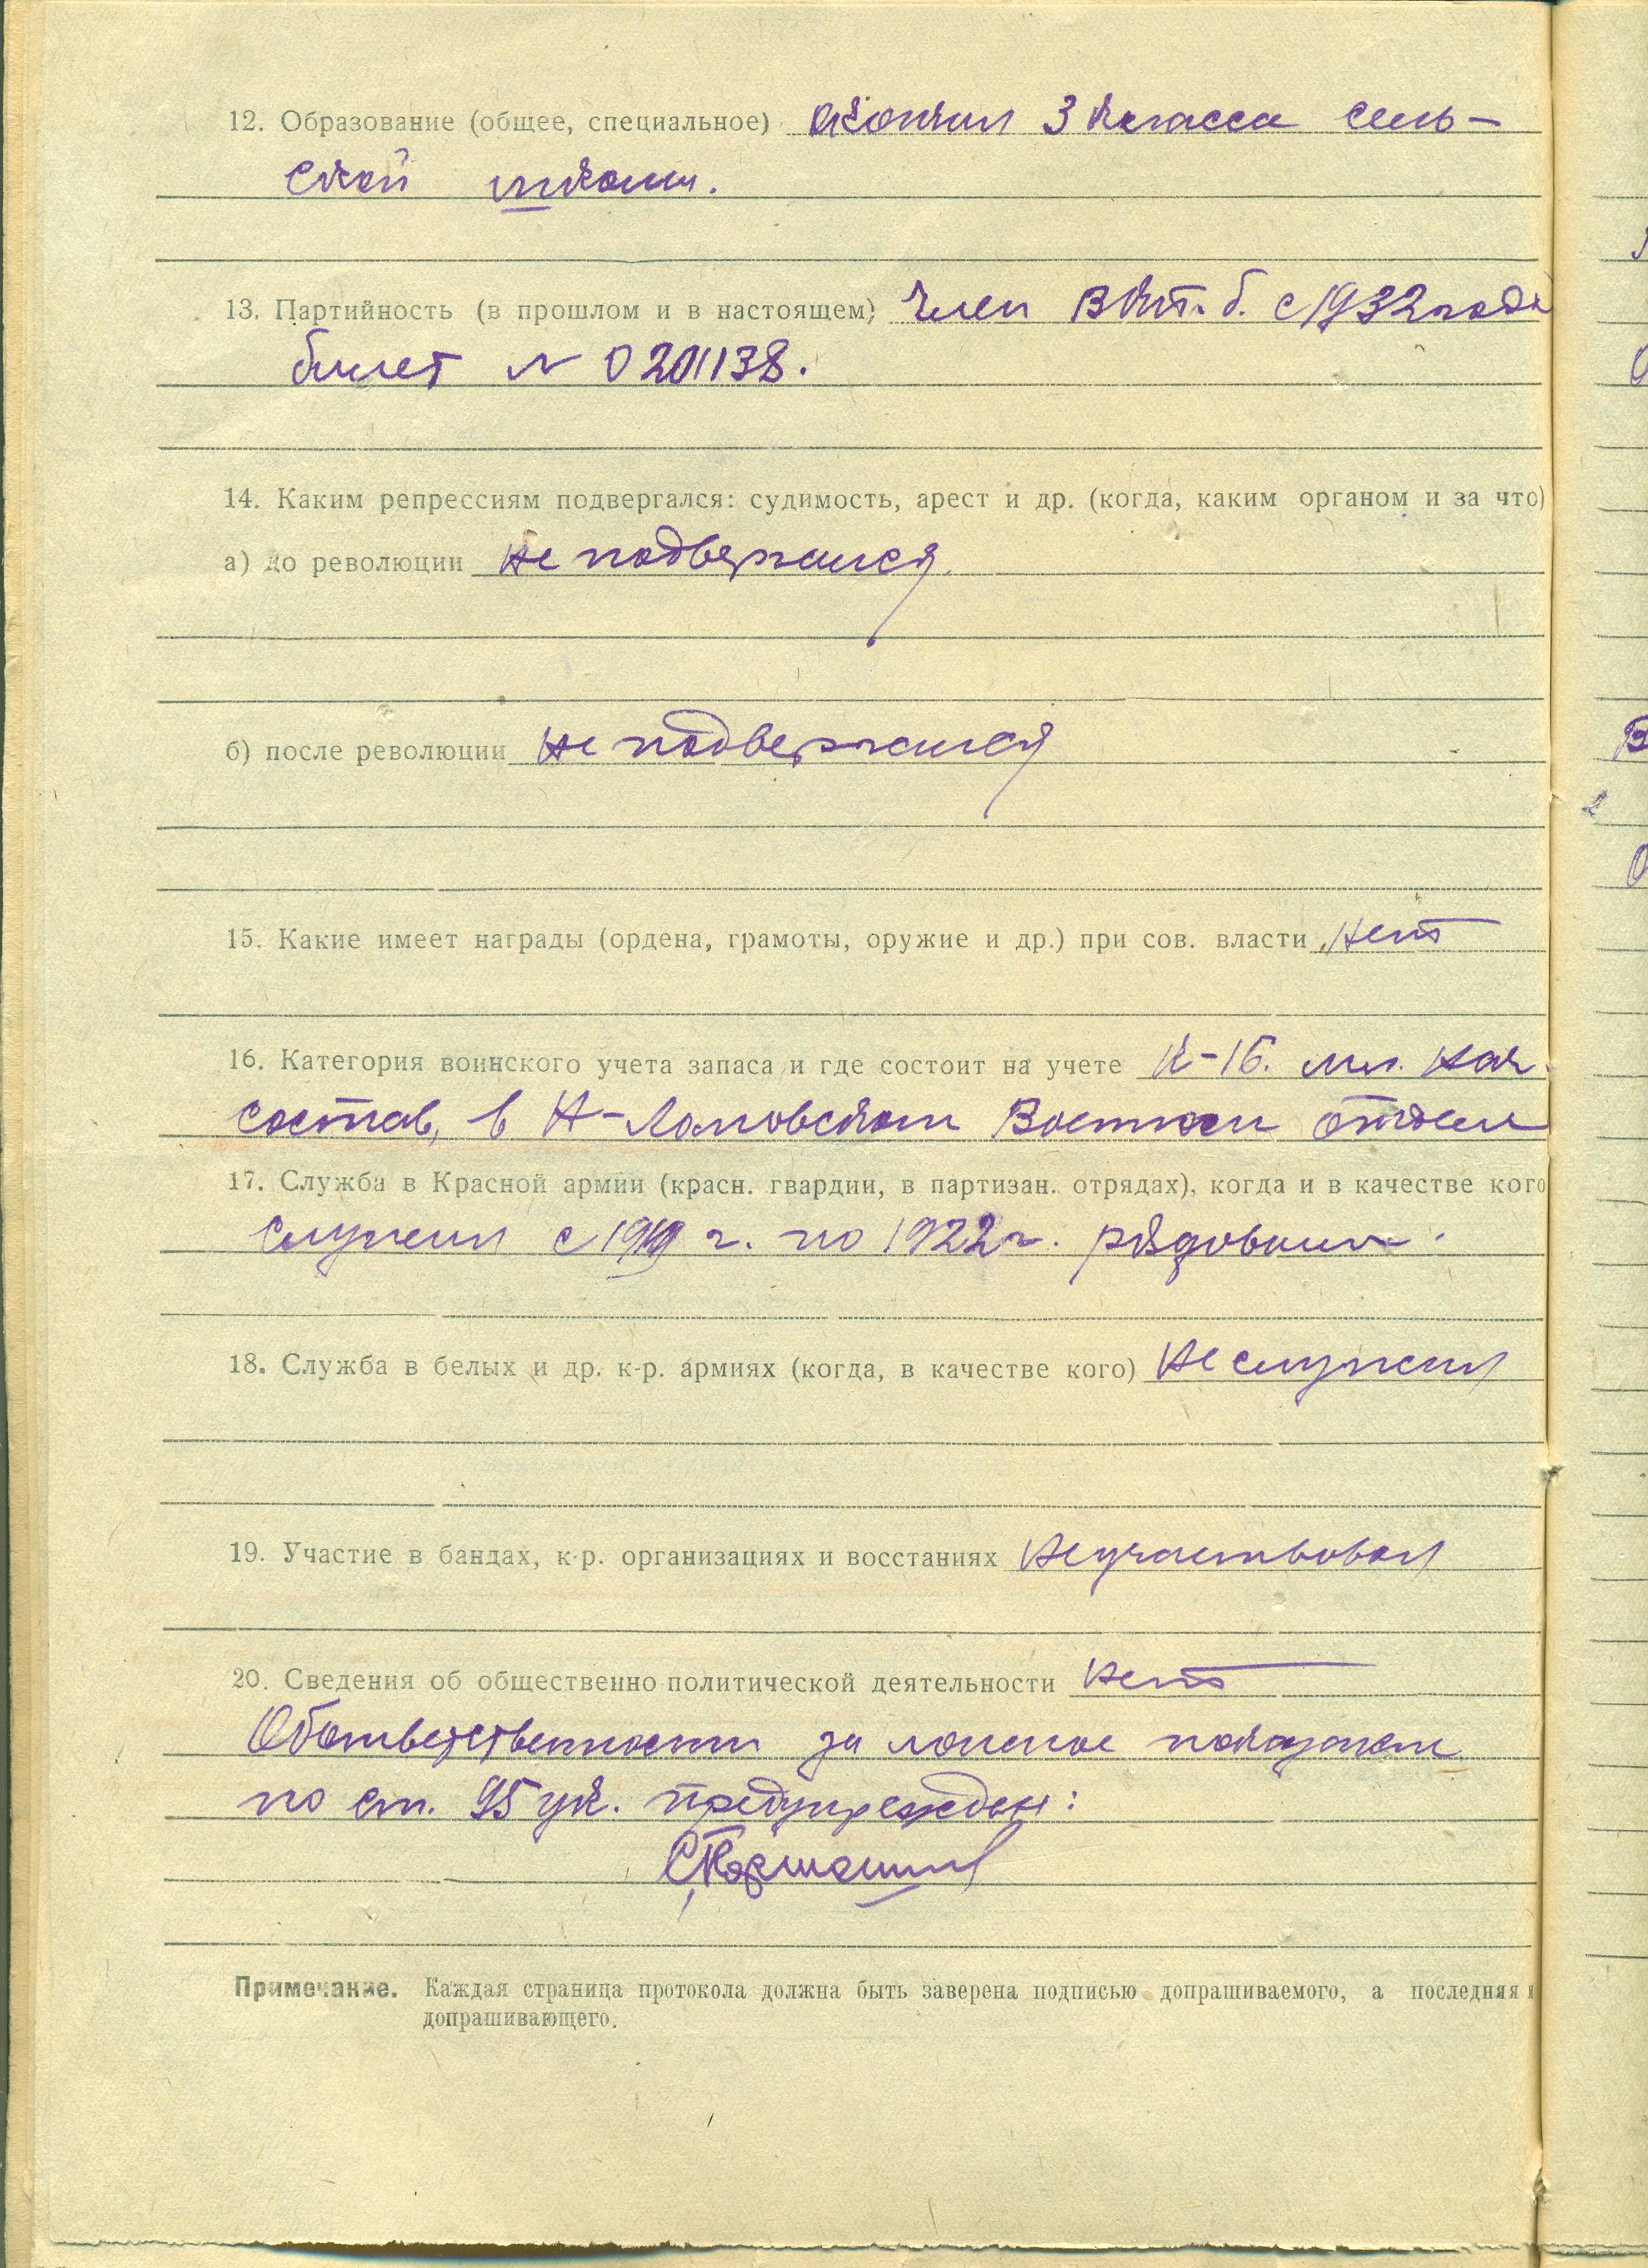 12. Образование (общее, специальное) окончил 3 класса сель-
ской школы.
13. Партийность (в прошлом и в настоящем) Член ВКП.б. с 1932 года
билет № 0201138.
14. Каким репрессиям подвергался: судимость, арест и др. (когда, каким органом и за что)
а) до революции не подвергался
б) после революции не подвергался
15. Какие имеет награды (ордена, грамоты, оружие и др.) при сов. власти нет
16. Категория воинского учета запаса и где состоит на учете мл. нач.
состав, в Н-Ломовском Военном отделе
17. Служба в Красной армии (красн. гвардии, в партизан. отрядах), когда и в качестве кого
служил с 1919 г. по 1922 г. рядовым.
18. Служба в белых и др. к-р. армиях (когда, в качестве кого) не служил
19. Участие в бандах, к-р. организациях и восстаниях не участвовал
20. Сведения об общественно политической деятельности нет
Об ответственности за ложные показания
по ст. 95 ук. предупрежден:
Примечание. Каждая страница протокола должна быть заверена подписью допрашиваемого, а последняя и
допрашивающего.